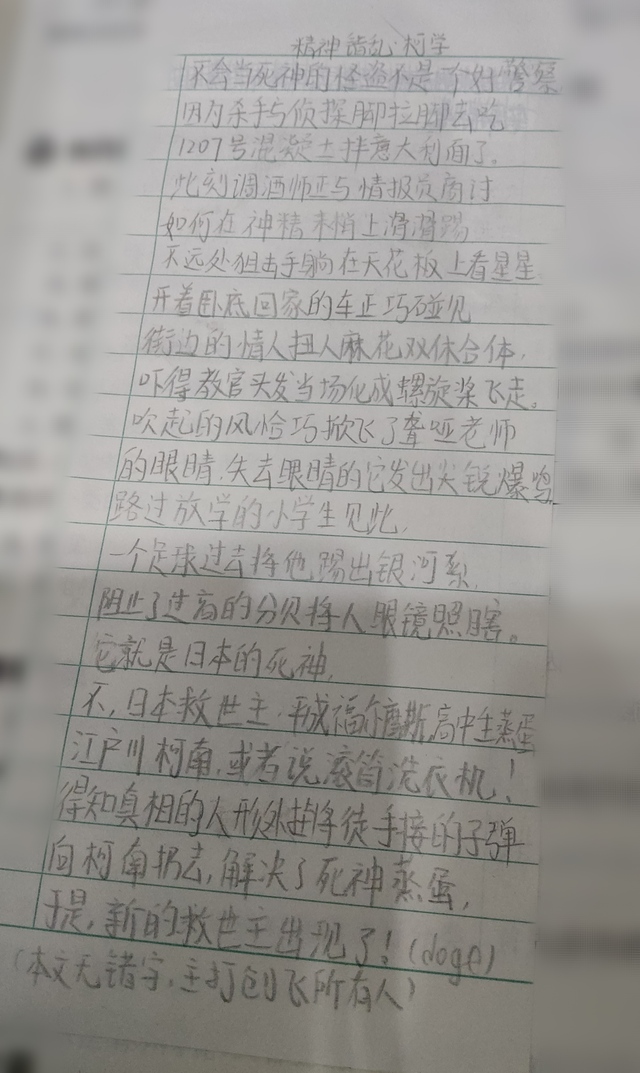 精神错乱·柯学
不会当死神的怪盗不是一个好警察
因为杀手与侦探脚拉脚去吃
1207号混凝土拌意大利面了。
此刻调酒师正与情报员商讨
如何在神精末梢上滑滑踢
不远处狙击手躺在天花板上看星星
开着卧底回家的车正巧碰见
街边的情人扭人麻花双体合体,
吓得教官头发当场化成螺旋桨飞走。
吹起的风恰巧掀飞了聋哑老师
的眼睛.失去眼睛的它发出尖锐爆鸣
路过放学的小学生见此,
一个足球过去将他踢出银河系,
阻止了过高的分贝将人眼镜照瞎。
它就是日本的死神,
不,日本救世主.平成福尔摩斯,高中生蒸蛋
江户川柯南,或者说滚筒洗衣机!
得知真相的人形外挂将徒手接的子弹
向柯南扔去,解决了死神蒸蛋,
于是,新的救世主出现了!(doge)
(本文无错字,主打创飞所有人)